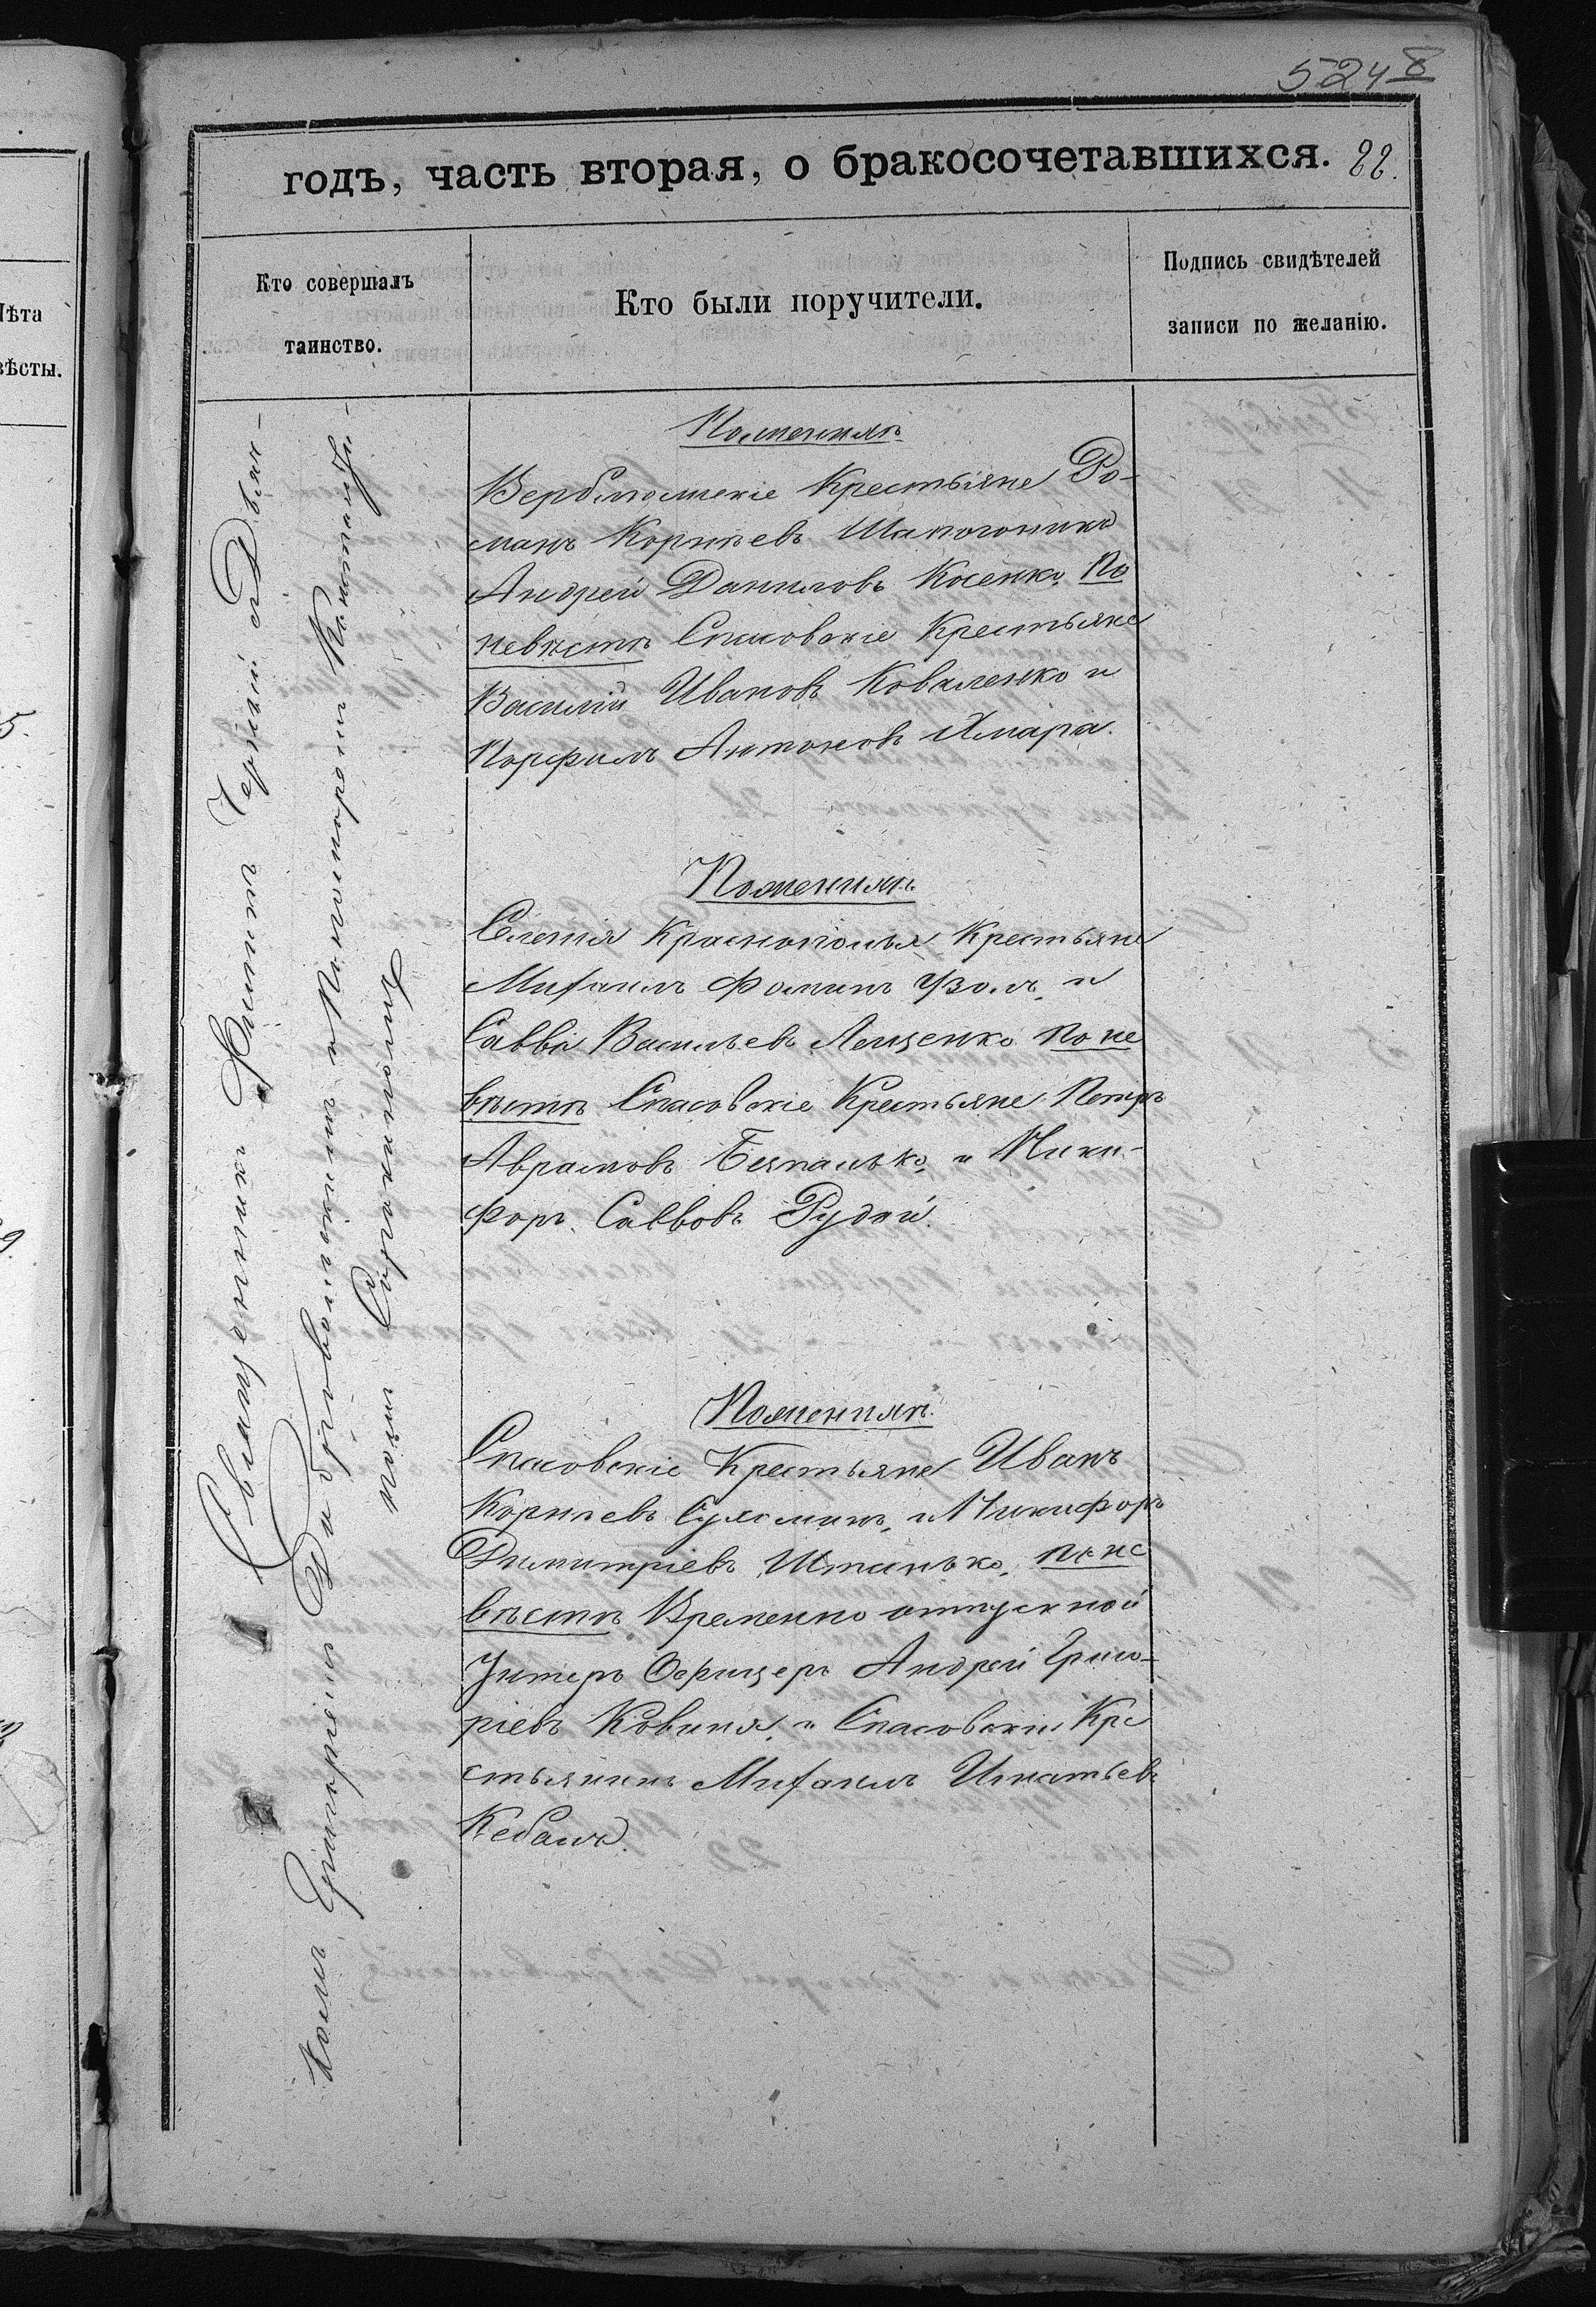 5248
годъ, часть вторая, о бракосочетавшихся. 22.
Кто совершалъ
таинство.
Кто были поручители.
Подпись свидѣтелей
записи по желанію.
Лѣта
вѣсты.
Священникъ Филиппъ Чернай съ Діа-
кономъ Григоріемъ Дибровольскимъ и Пономаремъ
номъ
По женихѣ
Вербположскіе Крестьяне Ро-
манъ Корнѣевъ Шаповникъ
Андрей Даниловъ Косенко, По
невѣстѣ Спасовскіе Крестьяне
Василій Ивановъ Коваленко и
Порфилъ Антоновъ Хмара.
По женихѣ
Селенія Краснополья, Крестьяне
Михаилъ Фоминъ Узолъ, и
Савва Васильевъ Лещенко По не
вѣстѣ Спасовскіе Крестьяне Петръ
Аврамовъ Безпалько, и Ники-
форъ Саввовъ Рудой.
По женихѣ
Спасовскіе Крестьяне Иванъ
Корнѣевъ Сухоминъ, и Никифоръ
Димитріевъ Штанько, По не
вѣстѣ Временно отпускной
Унтеръ Офицеръ Андрей Григо-
ріевъ Ковиня, и Спасовскій Кре
стьянинъ Михаилъ Игнатьевъ
Кебалъ.